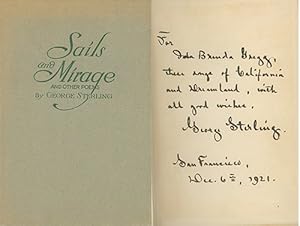 Sails
and
Mirage
AND OTHER POEMS
By GEORGE STERLING
For
Ida Brenda Gregg,
these songs of California
and Dreamland, with
all good wishes.
George Sterling.
San Francisco,
Dec. 6th, 1921.